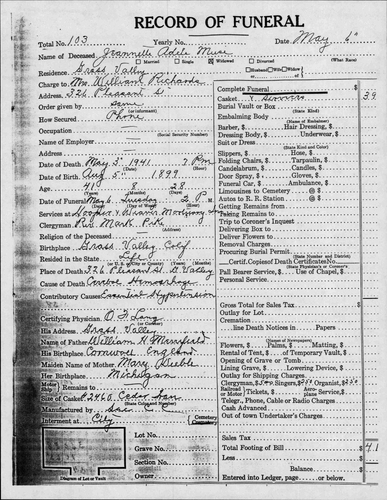 RECORD OF FUNERAL
Total No. 103 Yearly No. Date May 6"
Name of Deceased Jeannette Adele Muse
Married Single Widowed Divorced (What Race)
Residence Grass Valley Husband Wife Widow of
Charge to Mrs William Richards
Address 326 Pleasant St.
Order given by same
(or informant)
How Secured Phone
Occupation
(Social Security Number)
Name of Employer
Address
Date of Death May 3" 1941 7 Pm
Date of Birth Aug 5" 1899
Age 41 8 28
Date of Funeral May 6 Tuesday 2 P.m
Services at Hooper & Weaver Mortuary
Clergyman Rev Mark
Religion of the Deceased
Birthplace Grass Valley Calif
Resided in the State Life
Place of Death 326 Pleasant St G Valley
Cause of Death Hemorrhage
Contributory Causes Essential Hypertension
Certifying Physician
(or Coroner)
His Address Grass Valley
Name of Father William H
His Birthplace Cornwall England
Maiden Name of Mother Mary
Her Birthplace Michigan
Motor Ship Remains to
Size of Casket
Manufactured by
Interment at City Cemetery Crematory
Lot No.
Grave No.
Section No.
Owner
Diagram of Lot or Vault
Complete Funeral
Casket 39
Burial Vault or Box
(State Kind)
Embalming Body
(Name of Embalmer)
Barber, $ Hair Dressing, $
Dressing Body, $ Underwear, $
Suit or Dress
(State Kind and Color)
Slippers, $ Hose, $
Folding Chairs, $ Tarpaulin, $
Candelabrum, $ Candles, $
Door Spray, $ Gloves, $
Funeral Car, $ Ambulance, $
Limousines to Cemetery @ $
Autos to R. R. Station @ $
Getting Remains from
Taking Remains to
Trip to Coroner's Inquest
Delivering Box to
Deliver Flowers to
Removal Charges
Procuring Burial Permit
(State Number and District)
Certif. Copies of Death Certificates No.
(State Physician's or Coroner's)
Pall Bearer Service, $ Use of Chapel, $
Personal Service
Gross Total for Sales Tax
Outlay for Lot
Cremation
line Death Notices in Papers
(Names of Newspapers)
Flowers, $ Palms, $ Matting, $
Rental of Tent, $ of Temporary Vault, $
Opening of Grave or Tomb
Lining Grave, $ Lowering Device, $
Outlay for Shipping Charges
Clergyman, $ Singers, $ Organist, $
Railroad or Motor $ Tickets, $ Aeroplane Service, $
Telegr., Phone, Cable or Radio Charges
Cash Advanced
Out of town Undertaker's Charges
Sales Tax
Total Footing of Bill 41
Less
Balance
Entered into Ledger, page or below.